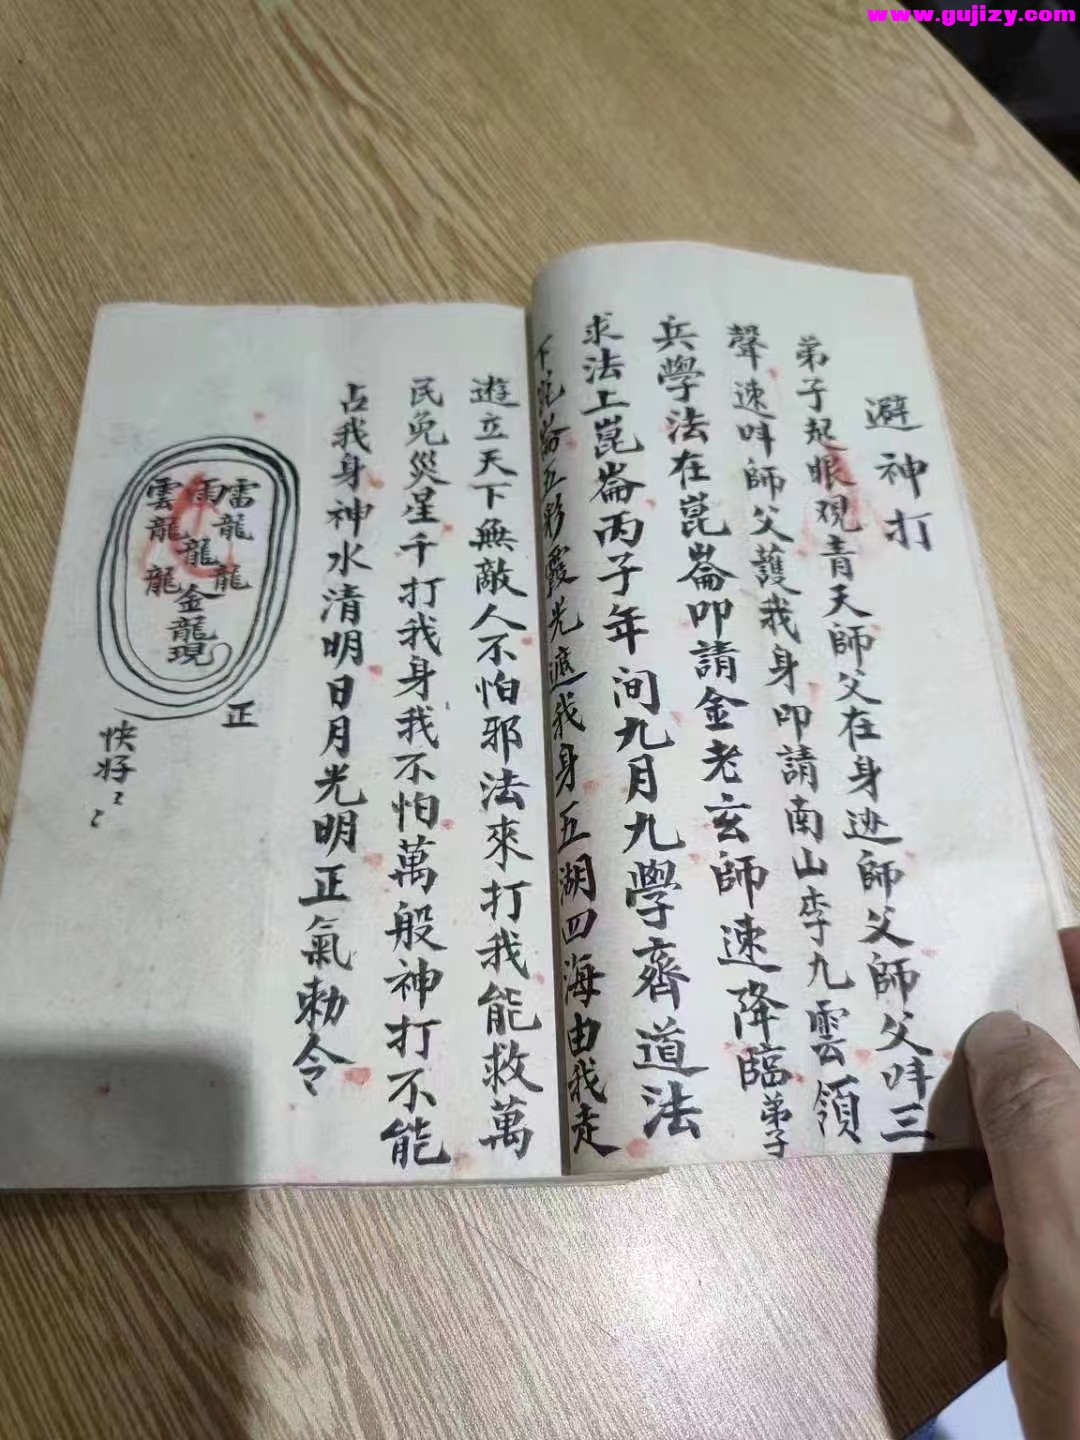 www.gujizy.com
避神打
弟子起眼观青天師父在身边師父師父吽三
聲速吽師父護我身叩請南山李九雲領
兵學法在崑崙叩請金老玄師速降臨弟子
求法上崑崙丙子年间九月九學齊道法
下崑崙五彩霞光遮我身五湖四海由我走
遊立天下無敵人不怕邪法來打我能救萬
民免災星千打我身我不怕萬般神打不能
占我身神水清明日月光明正氣勅令
雷龍
雨龍
雲龍
龍
龍
金龍現
正
快好〻〻